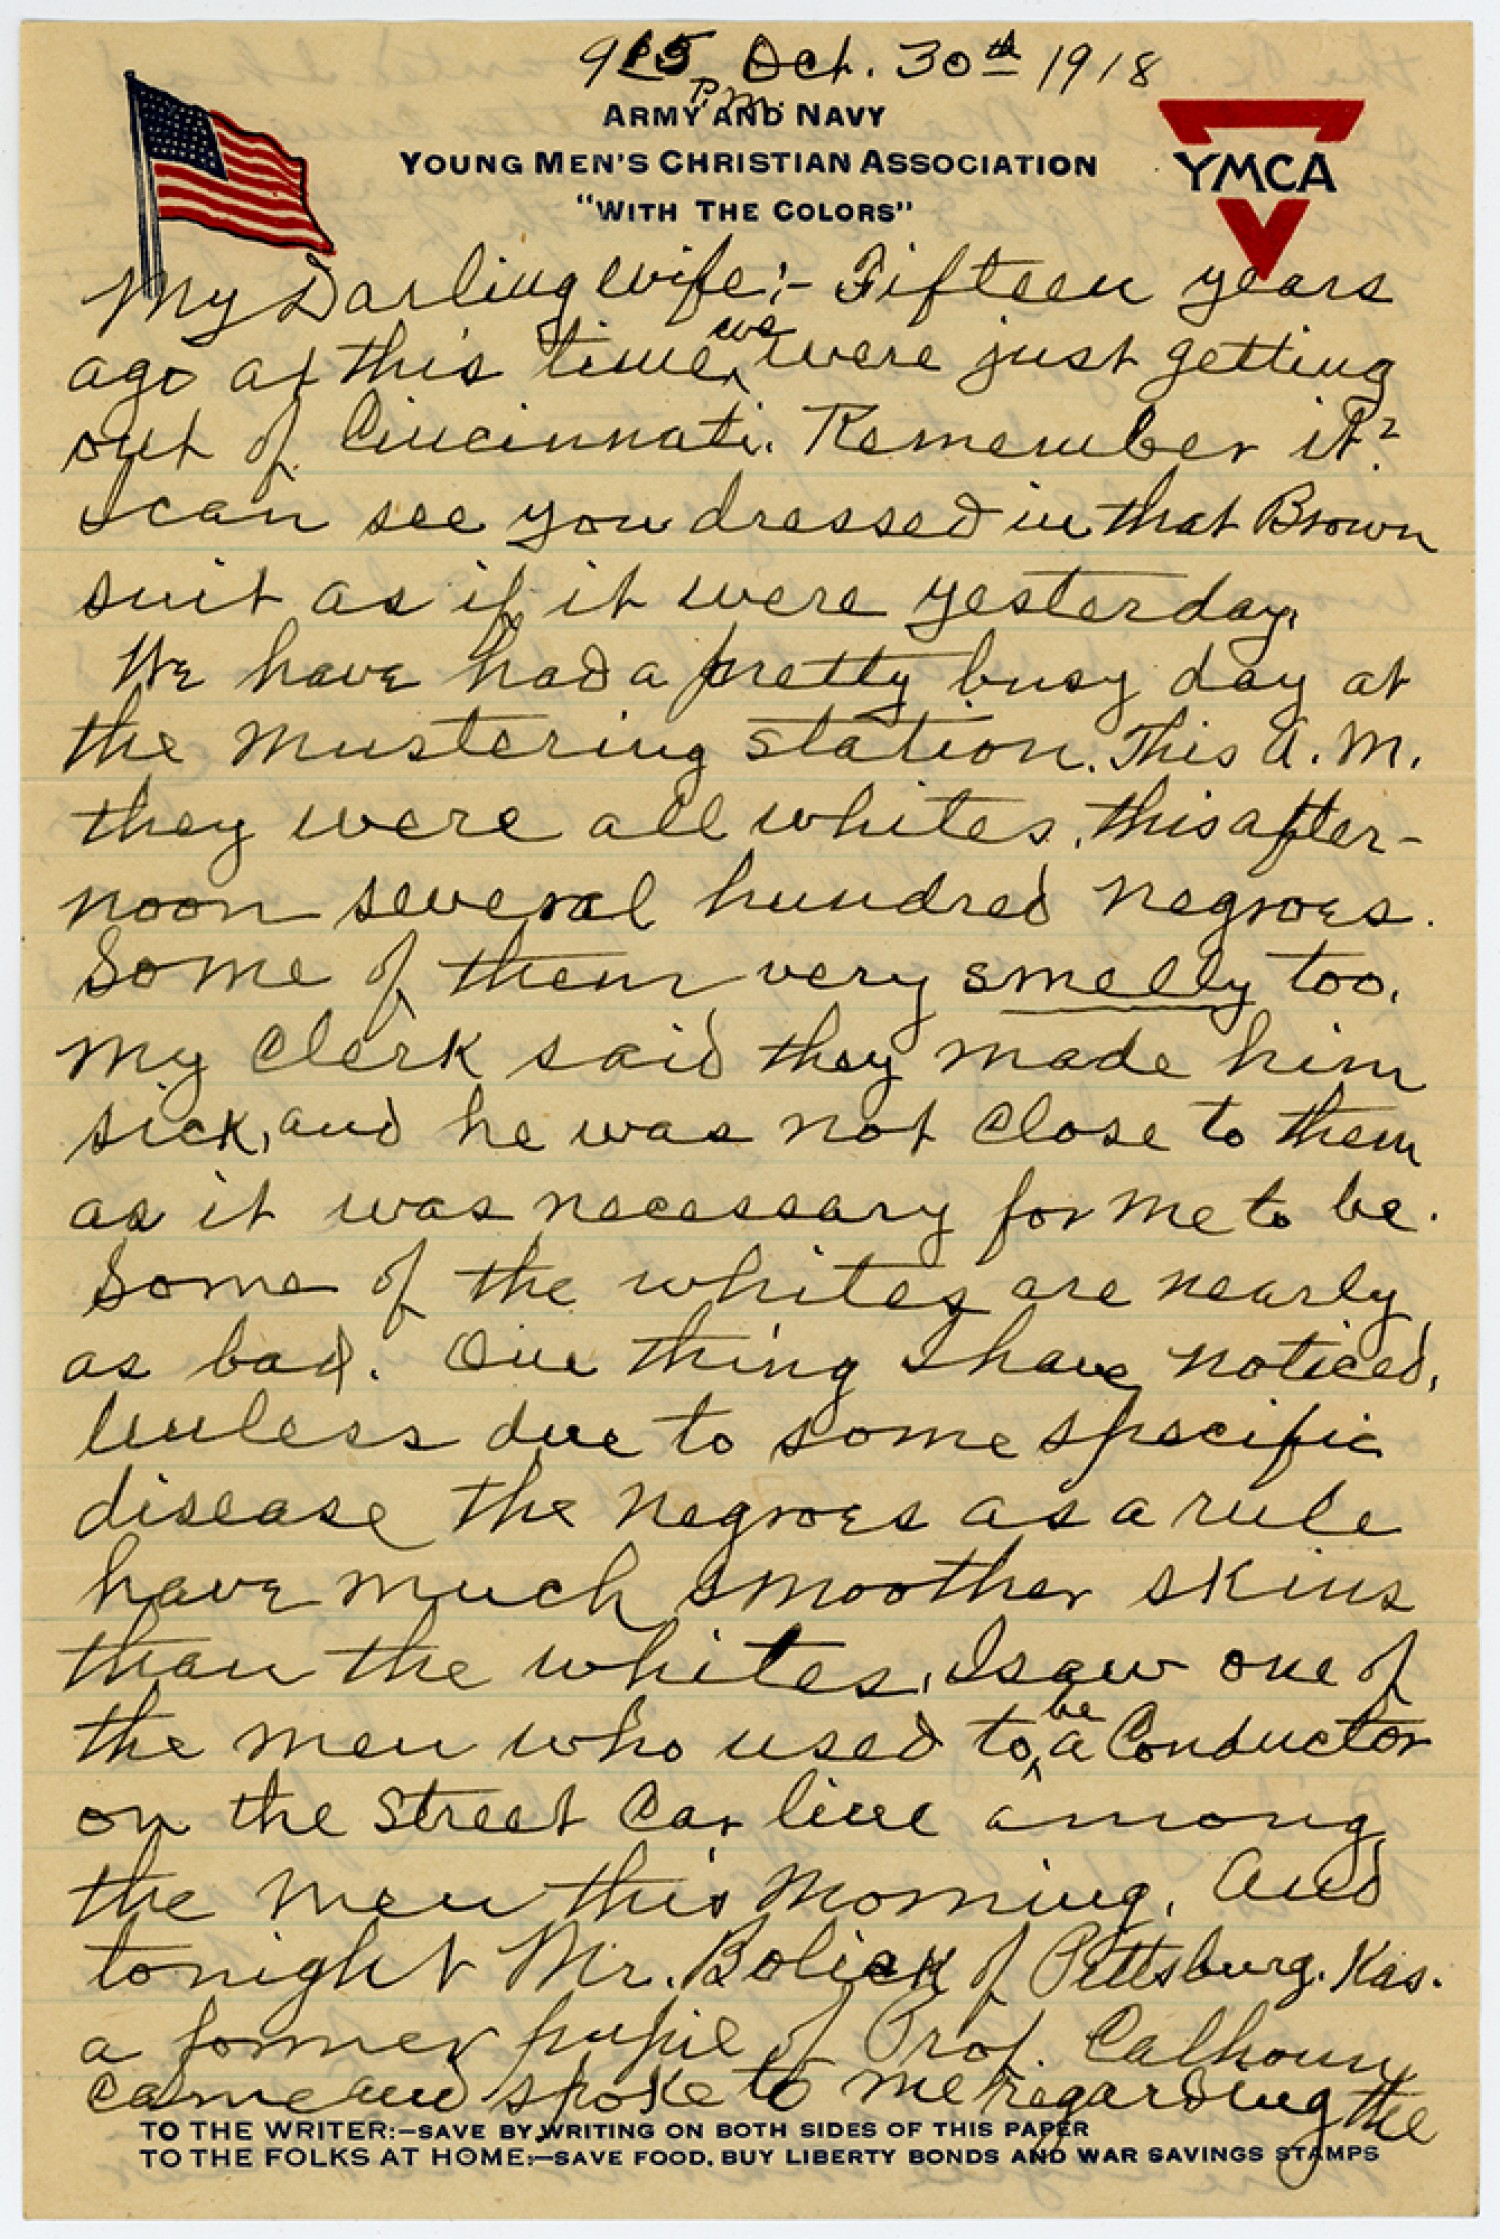 9 15 P.M. Oct. 30th 1918
ARMY AND NAVY
YOUNG MEN'S CHRISTIAN ASSOCIATION
"WITH THE COLORS"
YMCA
My Darling wife:- Fifteen years
ago at this time we were just getting
out of Cincinnati. Remember it?
I can see you dressed in that Brown
suit as if it were yesterday.
We have had a pretty busy day at
the mustering station. This A.M.
they were all whites, this after-
noon several hundred negroes.
Some of them very smelly too.
My Clerk said they made him
sick, and he was not close to them
as it was necessary for me to be.
Some of the whites are nearly
as bad. One thing I have noticed,
Unless due to some specific
disease the negroes as a rule
have much smoother skins
than the whites. I saw one of
the men who used to be a Conductor
on the Street Car line among
the men this morning. And
tonight Mr. Bolick of Pittsburg. Kas.
a former pupil of Prof. Calhoun
came and spoke to me regarding the
TO THE WRITER:—SAVE BY WRITING ON BOTH SIDES OF THIS PAPER
TO THE FOLKS AT HOME:—SAVE FOOD, BUY LIBERTY BONDS AND WAR SAVINGS STAMPS